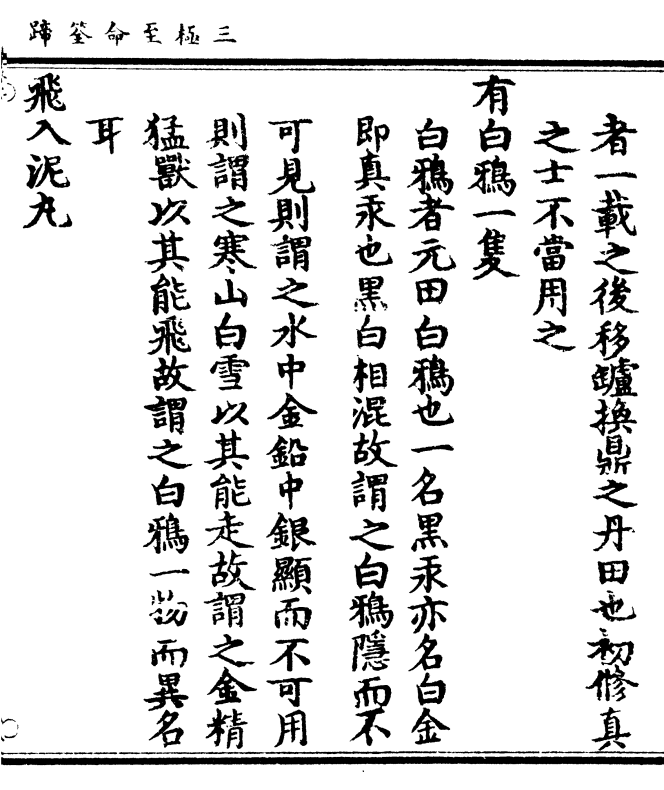 三極至命筌蹄
者一載之後移罏換鼎之丹田也初修真
之士不當用之
有白鴉一隻
白鴉者元田白鴉也一名黑汞亦名白金
即真汞也黑白相混故謂之白鴉隱而不
可見則謂之水中金鉛中銀顯而不可用
則謂之寒山白雪以其能走故謂之金精
猛獸以其能飛故謂之白鴉一物而異名
耳
飛入泥丸